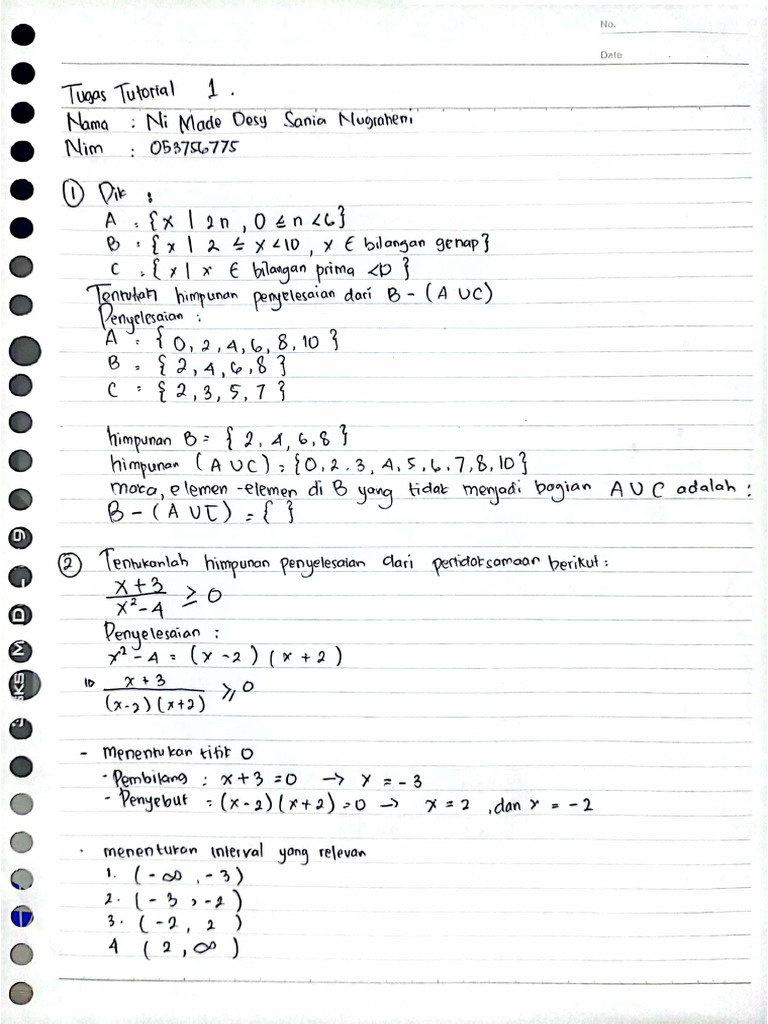 No.
Date
Tugas Tutorial 1.
Nama : Ni Made Desy Sania Nugraheni
Nim : 053756775
① Dik :
A = {x | 2n, 0 ≤ n < 6}
B = {x | 2 ≤ x < 10, x ∈ bilangan genap}
C = {x | x ∈ bilangan prima < 10}
Tentukan himpunan penyelesaian dari B - (A ∪ C)
Penyelesaian :
A = {0, 2, 4, 6, 8, 10}
B = {2, 4, 6, 8}
C = {2, 3, 5, 7}
himpunan B = {2, 4, 6, 8}
himpunan (A ∪ C) = {0, 2, 3, 4, 5, 6, 7, 8, 10}
maka, elemen-elemen di B yang tidak menjadi bagian A ∪ C adalah :
B - (A ∪ C) = { }
② Tentukanlah himpunan penyelesaian dari pertidaksamaan berikut :
x + 3
x² - 4 ≥ 0
Penyelesaian :
x² - 4 = (x - 2) (x + 2)
x + 3
(x-2) (x+2) ≥ 0
- menentukan titik 0
- Pembilang : x + 3 = 0 → x = -3
- Penyebut = (x-2)(x+2) = 0 → x = 2, dan x = -2
· menentukan interval yang relevan
1. (-∞, -3)
2. (-3, -2)
3. (-2, 2)
4 (2, ∞)